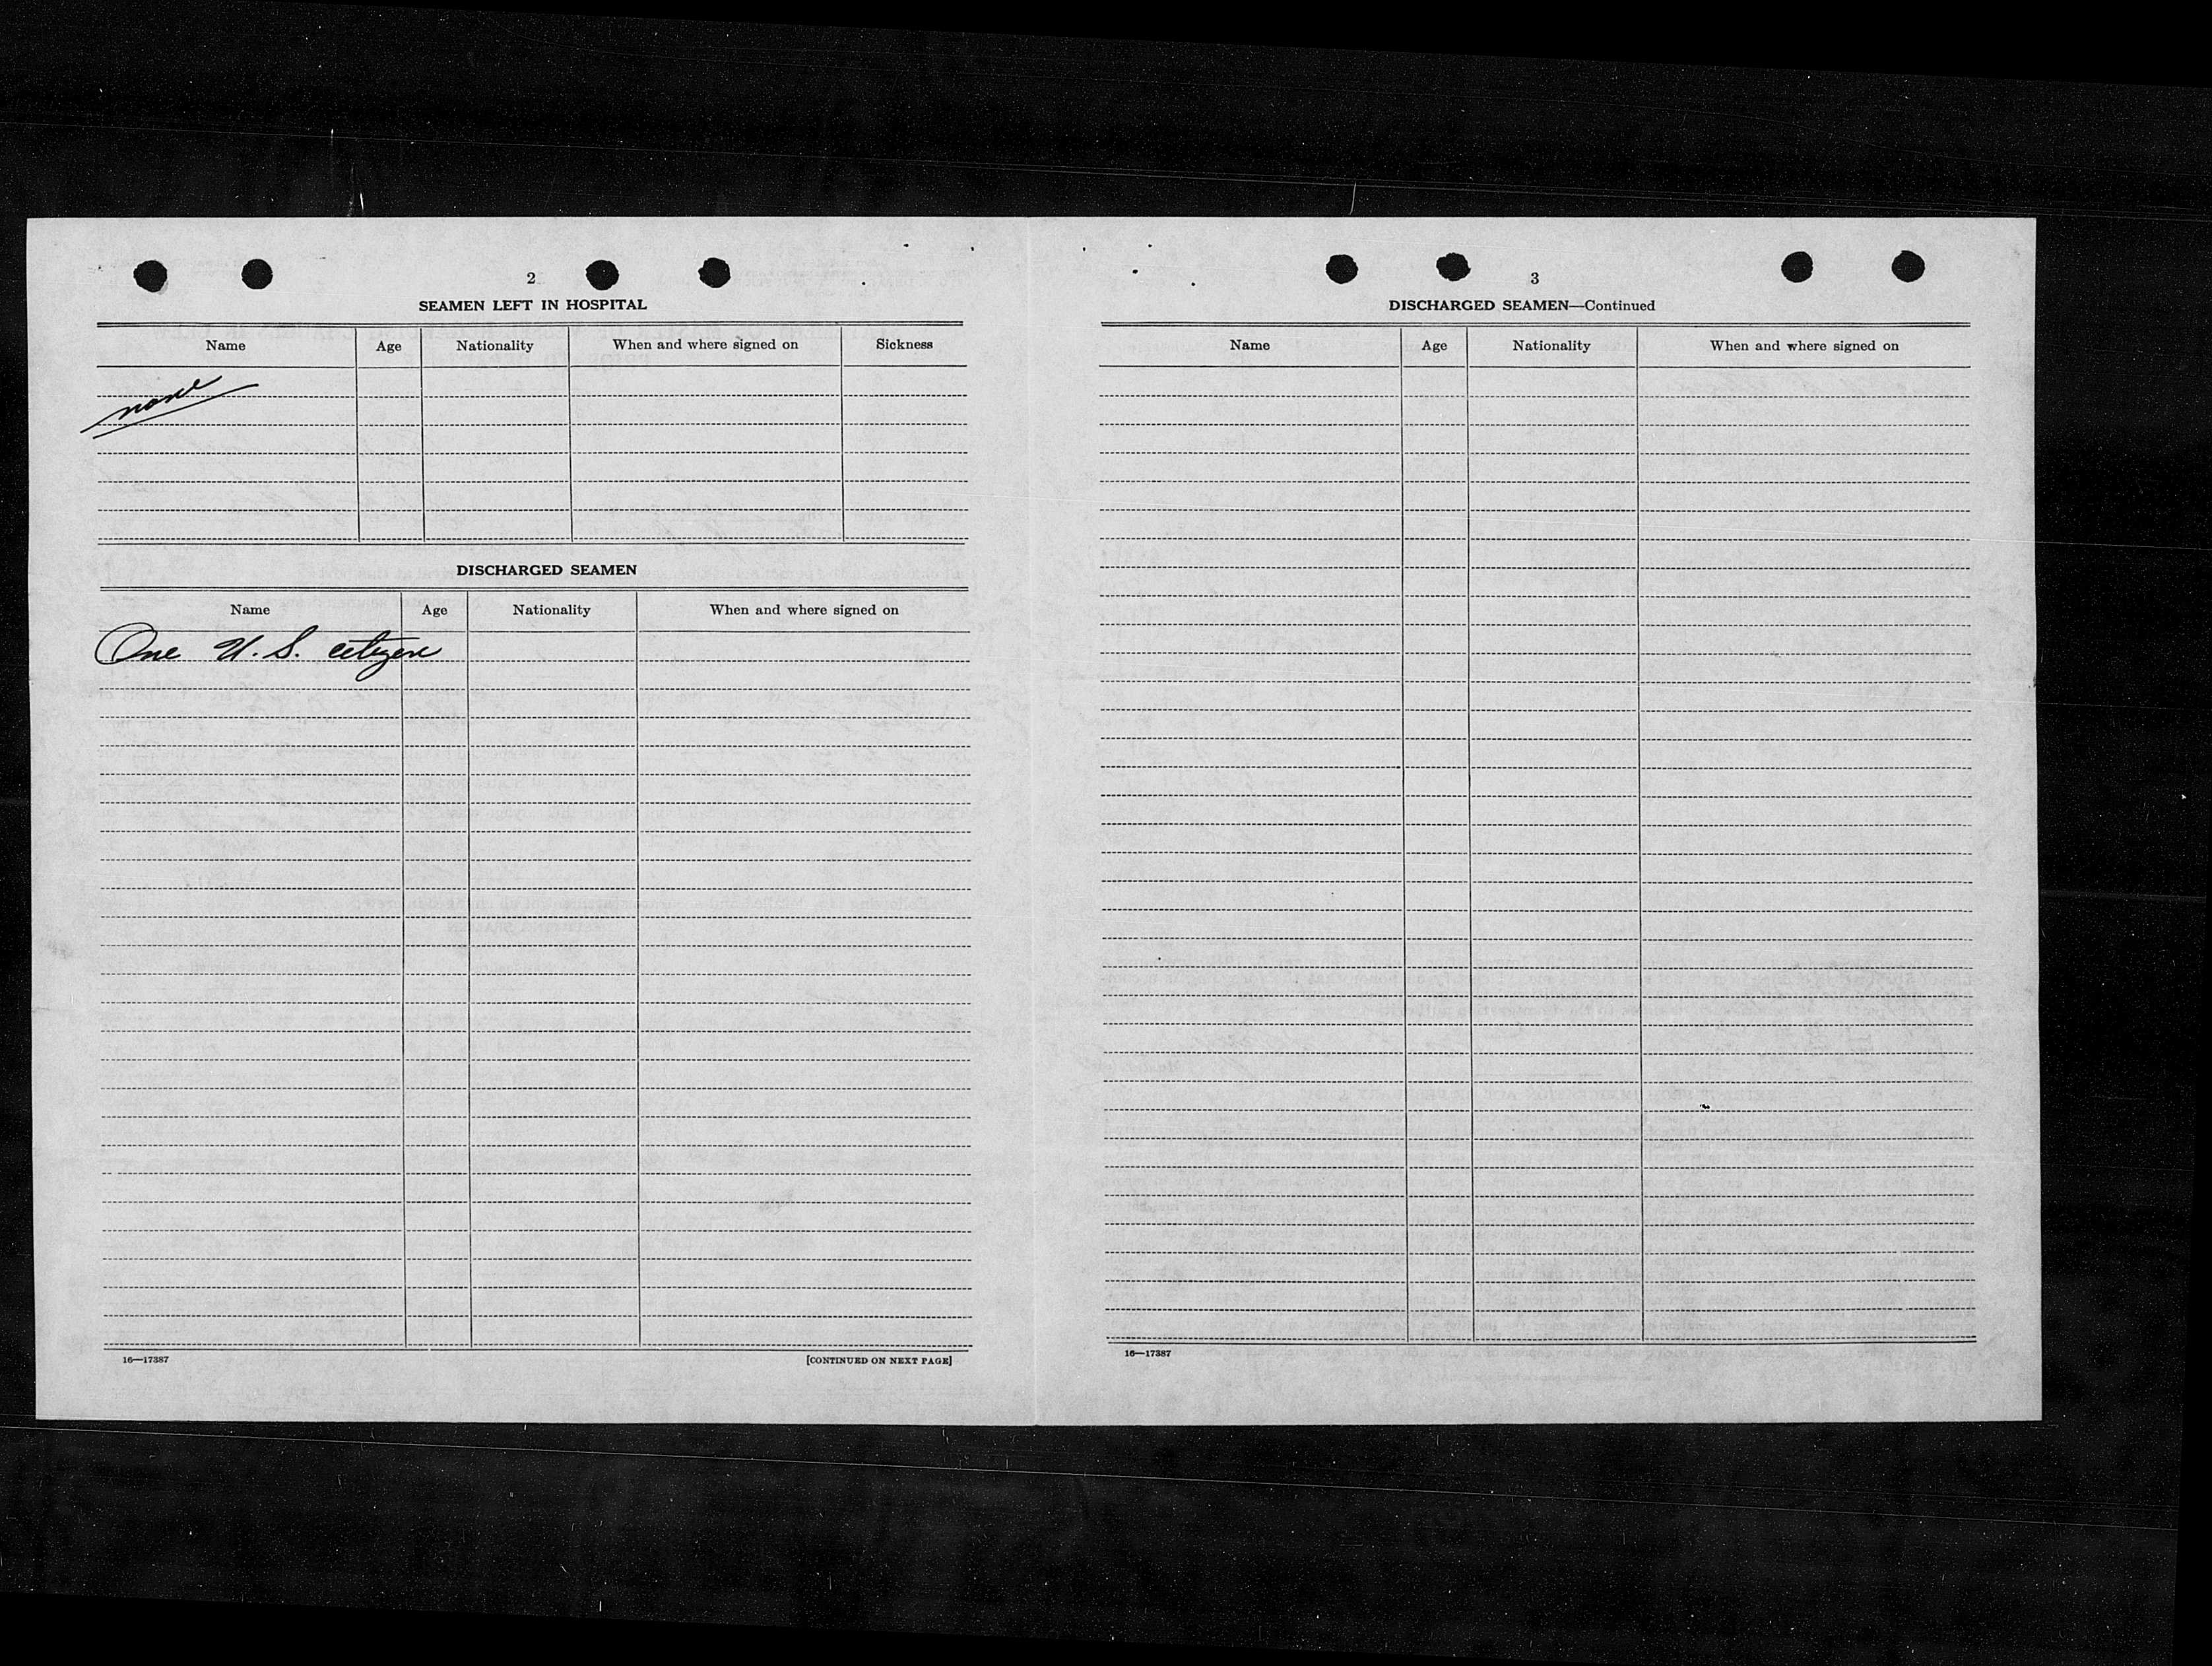 2
SEAMEN LEFT IN HOSPITAL
Name Age Nationality When and where signed on Sickness
none
DISCHARGED SEAMEN
Name Age Nationality When and where signed on
One U.S. citizen
16—17387 [CONTINUED ON NEXT PAGE]
3
DISCHARGED SEAMEN—Continued
Name Age Nationality When and where signed on
16—17387